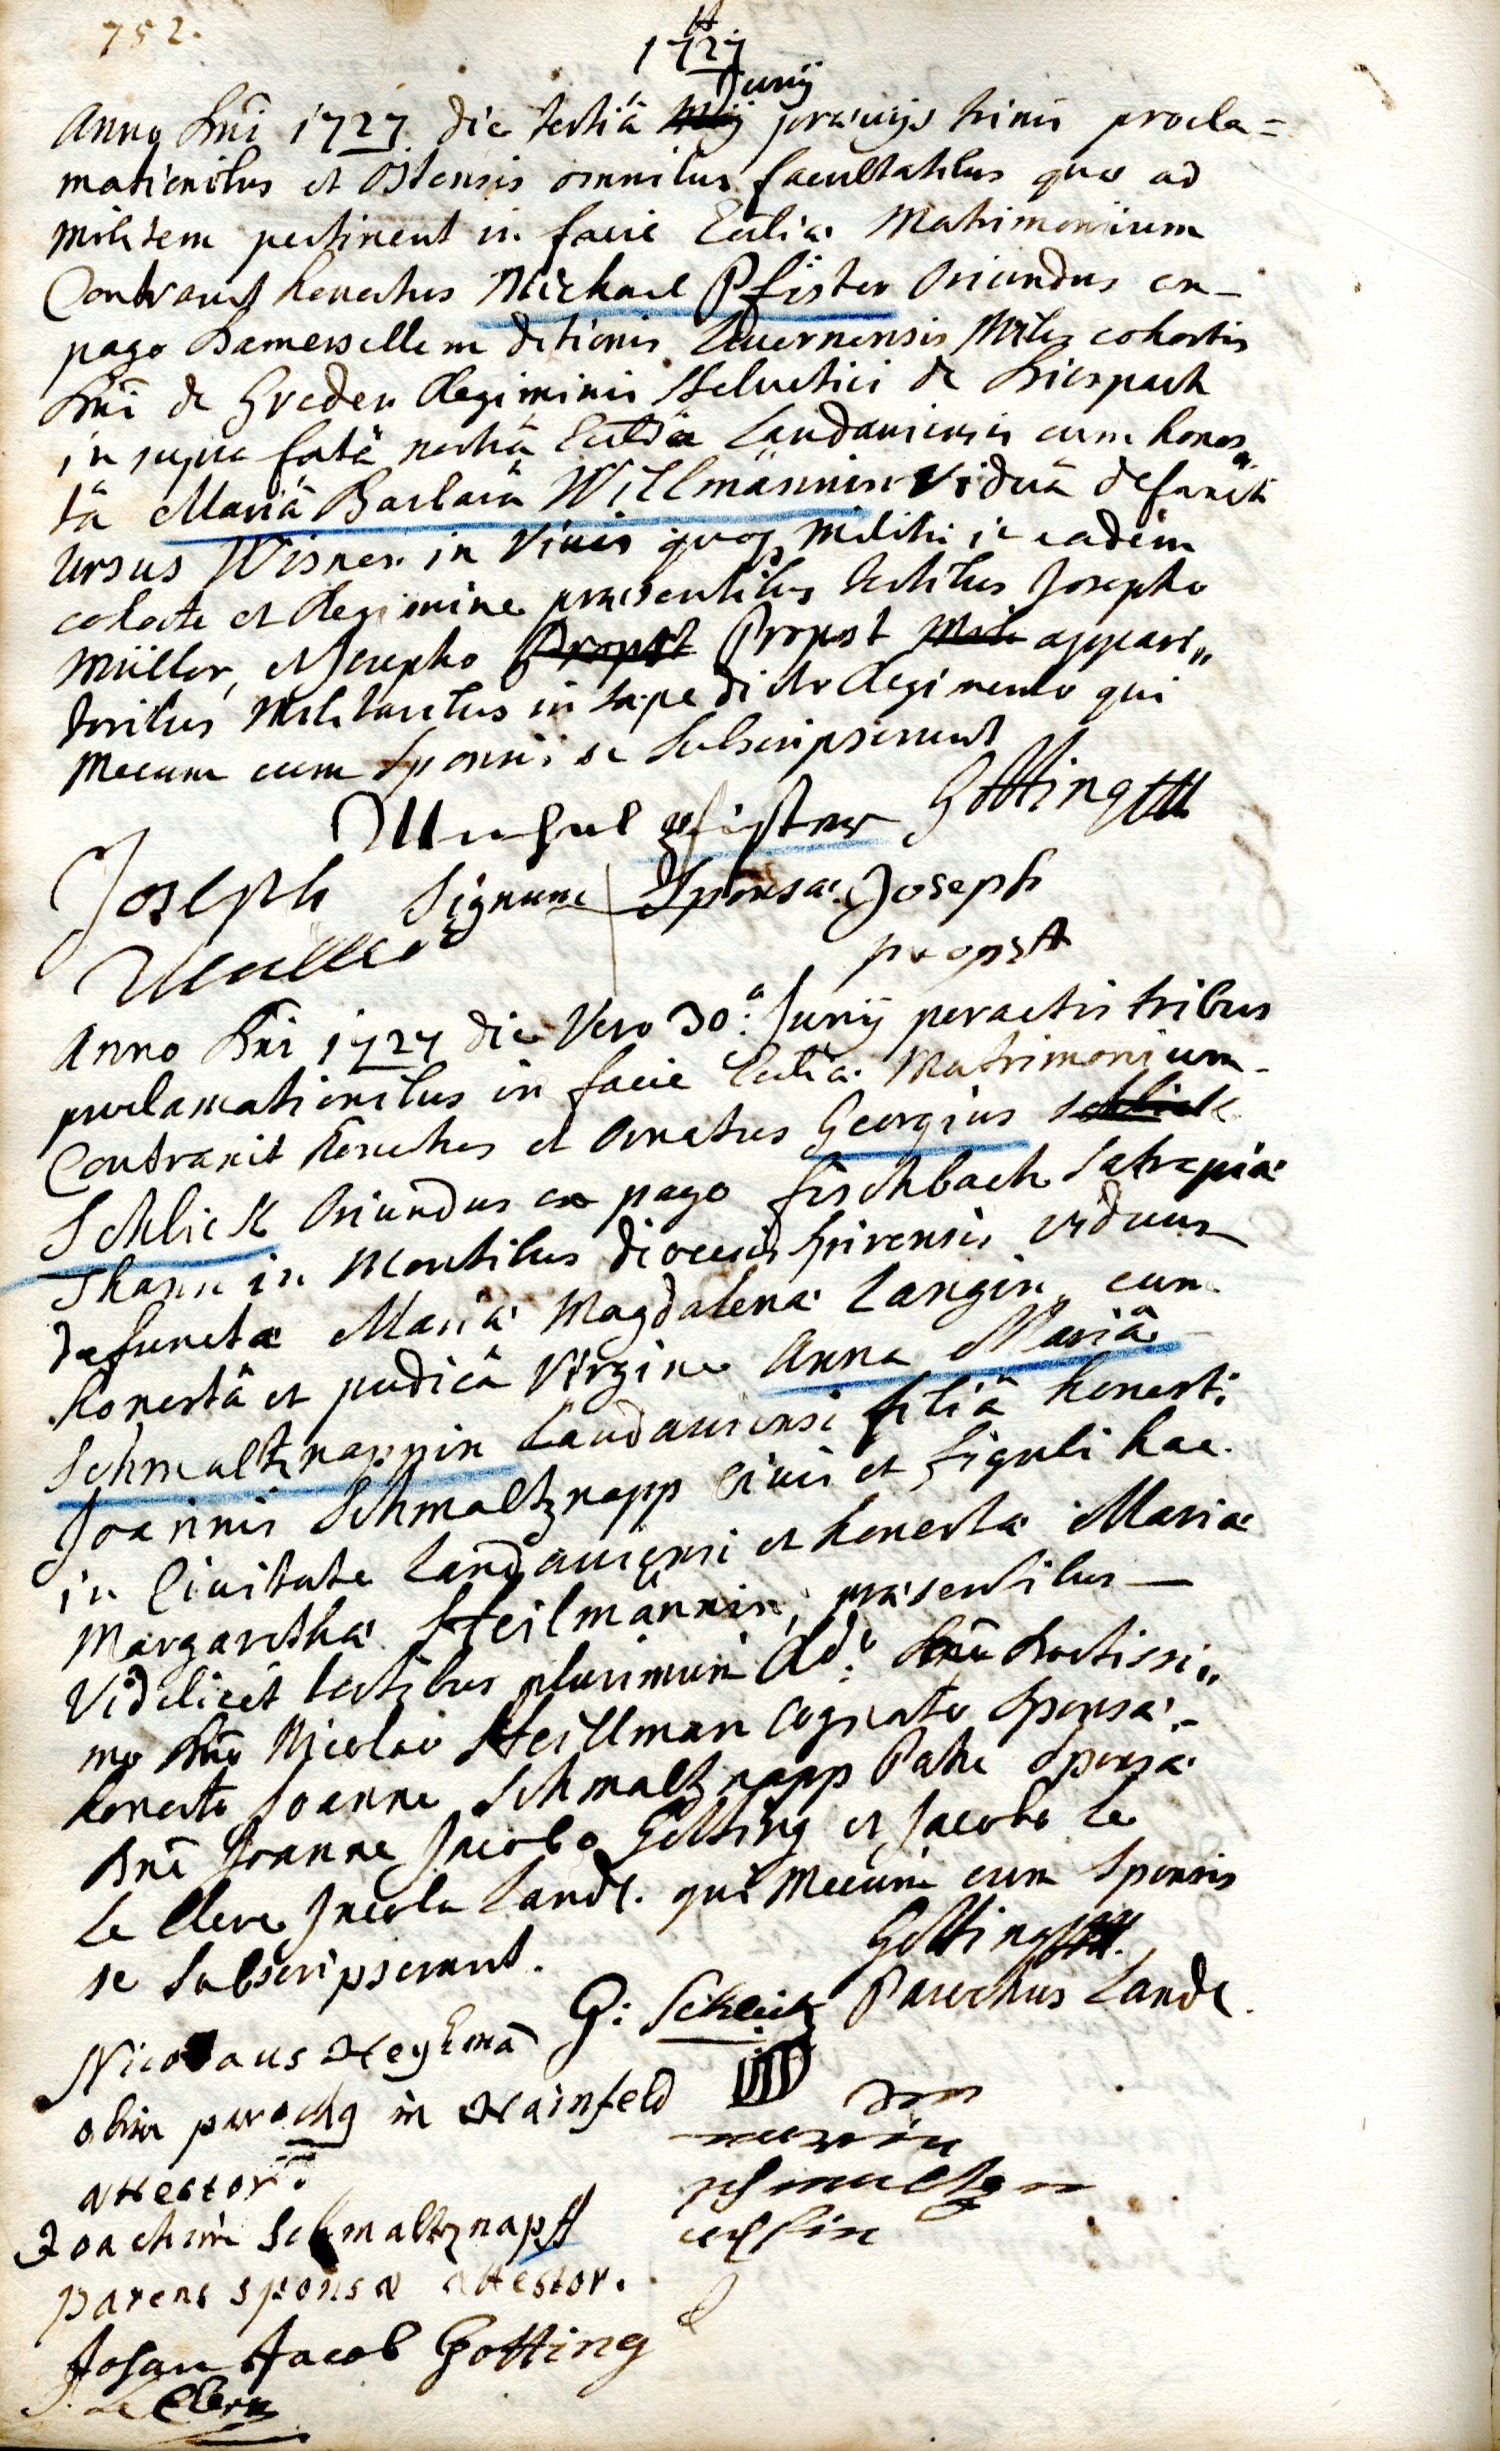 752.
1727
Junij
Anno Dñi 1727 die tertiâ Maij praevijs trinis procla=
mationibus et ostensis omnibus facultatibus quae ad
militem pertinent in facie Eccliae Matrimonium
Contraxit honestus Michael Pfister Oriundus ex
pago Damersellem ditionis Lucernensis Miles cohortis
Dñi de Greder Regiminis Helvetici de Diespach
in supra fatâ nostrâ Eccliâ Landaviensis cum hones
tâ Mariâ Barbarâ Willmännin Viduâ defuncti
Ursus Wisner in Vivis quoq Militis in eadem
cohorte et Regimine praesentibus testibus Josepho
Müller, et Josepho Propst Propst Mili appari„
toribus Militaribus in saepe dicto Regimento qui
Mecum cum Sponsis se Subscripserunt
Michel Pfister Gotting
Joseph Signum Sponsae Joseph
Müller propst
Anno Dñi 1727 die Vero 30.a Junij peractis tribus
proclamationibus in facie Eccliae Matrimonium
Contraxit honestus et Ornatus Georgius Schlick
Schlick Oriundus ex pago fischbach Satrapiae
Thann in Montibus dioecesis Spirensis viduus
defunctae Mariae Magdalenae Langin cum
honestâ et pudicâ Virgine Anna Mariâ
Schmaltznappin Landaviensi filiâ honesti
Joannis Schmaltznapp Civis et figuli hac
in Civitate Landaviensi et honestae Mariae
Margarethae Heilmännin, praesentibus
Videlicet testibus plurimum Rd.o Dño Doctissi„
mo Dño Nicolao Heillman Cognato Sponsae
honesto Joanne Schmaltznapp Patre Sponsae
Dño Joanne Jacobo Gotting et Jacobo Le
Le Clerc Incola Land. qui Mecum cum Sponsis
se Subscripserunt.
Gotting
G: Schlick Parochus Land.
Nicolaus Heylmã
olim parochg in Hainfeld
attestor.
Joachim Schmaltznapff
parens sponsae attestor.
Johan Jacob Gotting
J. Le Clerc